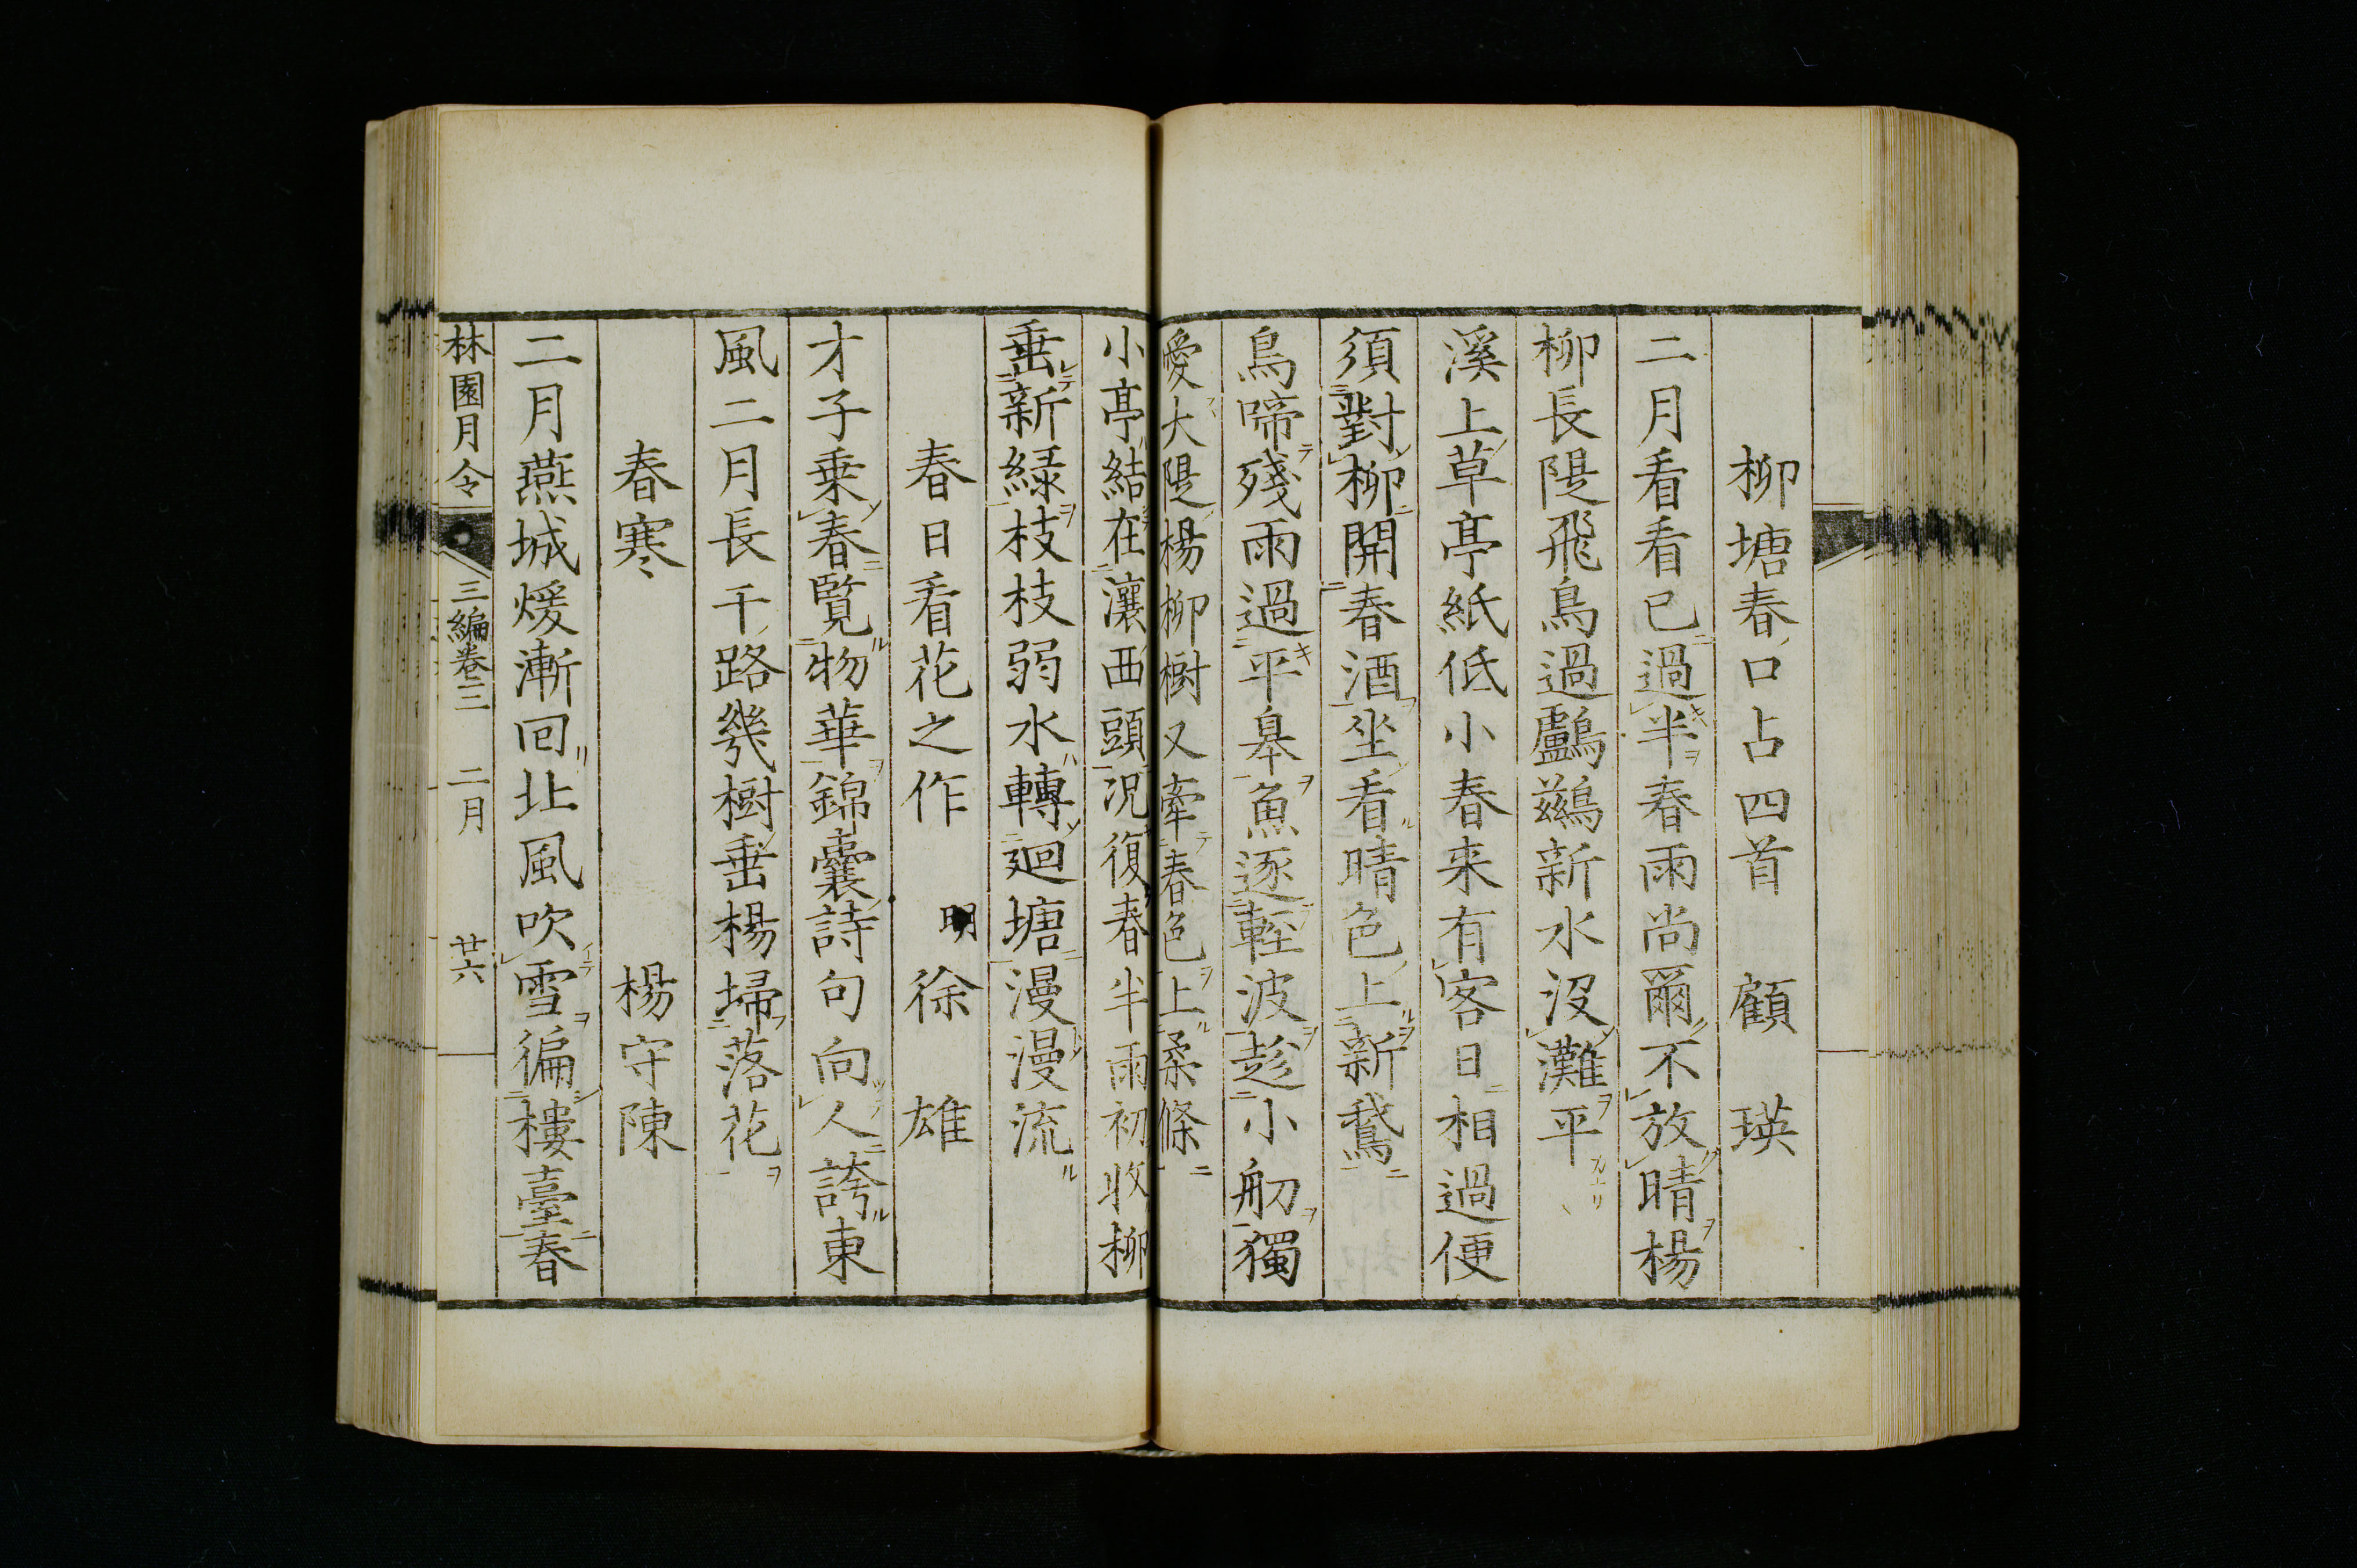 柳塘春口占四首　顧瑛
二月看看已過半春雨尚爾不放晴楊
柳長隄飛鳥過鸕鷀新水沒灘平
溪上草亭紙低小春来有客日相過便
須對柳開春酒坐看晴色上新鵞
鳥啼殘雨過平皋魚逐輕波趁小舠獨
愛大隄楊柳樹又牽春色上柔條
小亭結在瀼西頭況復春半雨初收柳
垂新緑枝枝弱水轉廻塘漫漫流
春日看花之作　明徐雄
才子乗春覧物華錦囊詩句向人誇東
風二月長干路幾樹垂楊掃落花
春寒　楊守陳
二月燕城煖漸回北風吹雪徧樓臺春
林園月令　三編巻三　二月　廿六